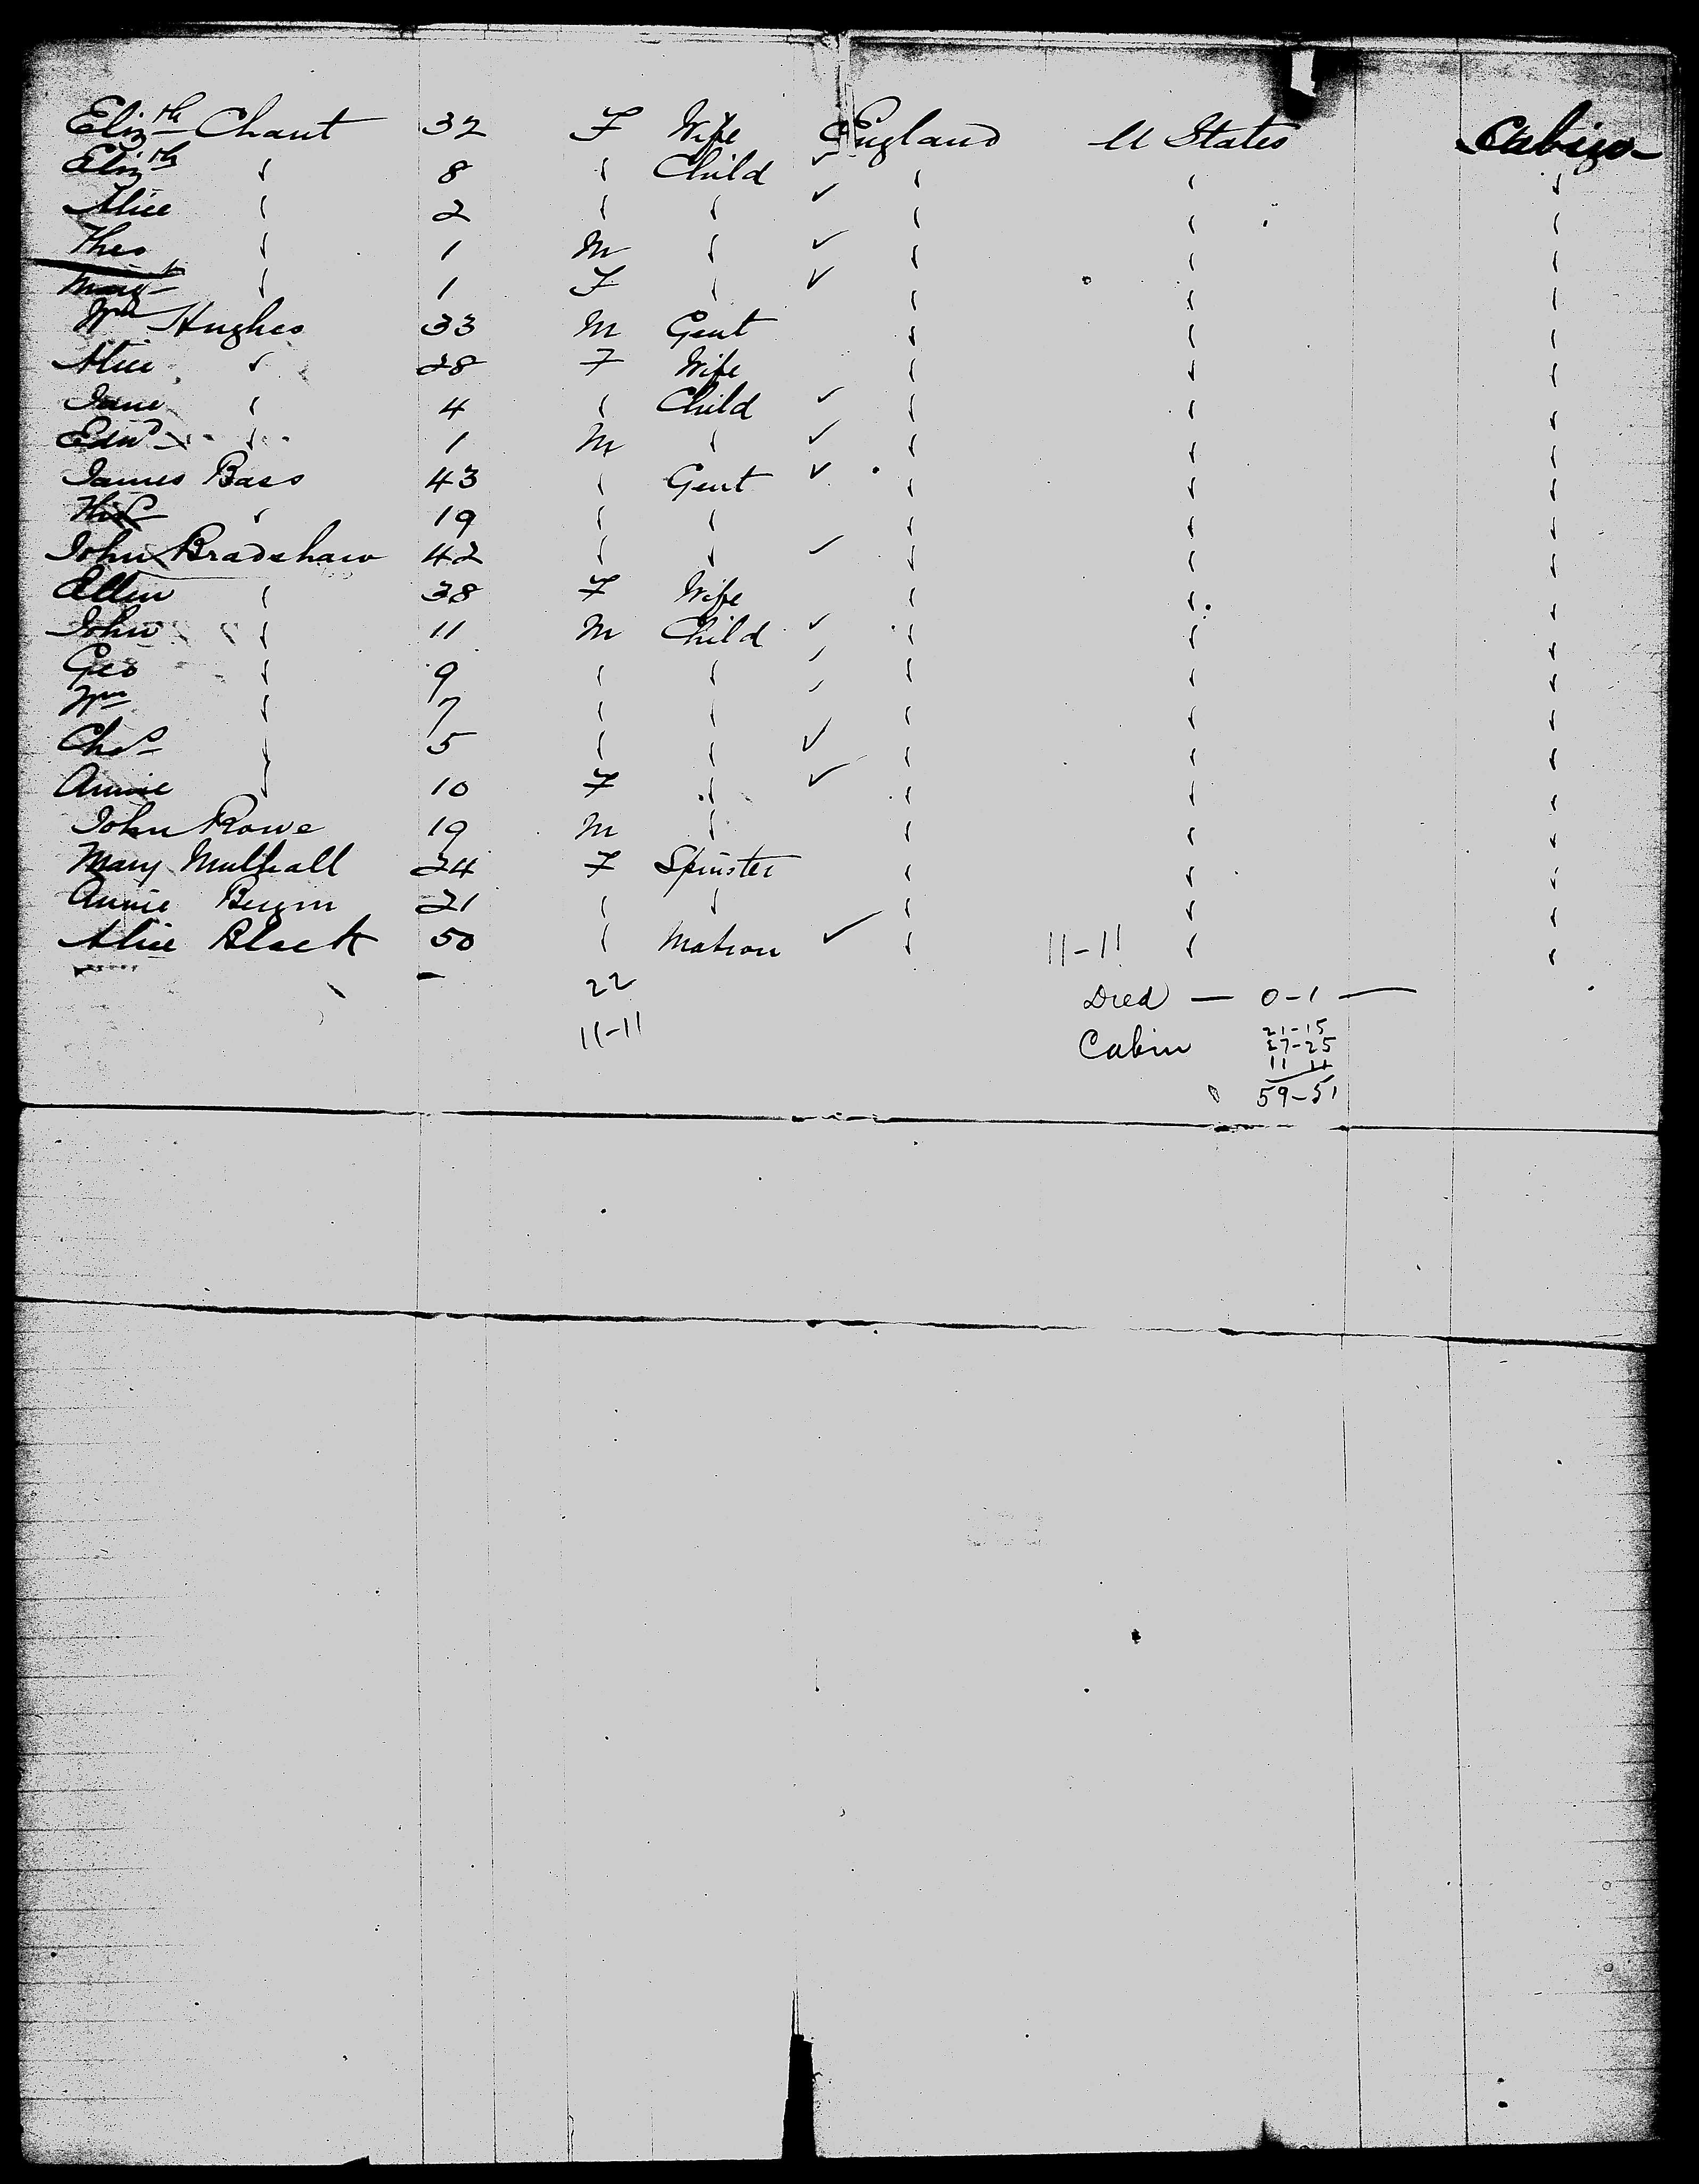 Eliz.th Chant 32 F Wife England U States Cabin
Eliz.th " 8 " Child ✓ " " "
Alice " 2 " " ✓ " " "
Thos " 1 M " ✓ " " "
Marg.t " 1 F " ✓ " " "
Wm Hughes 33 M Gent " " "
Alice " 28 F Wife " " "
Jane " 4 " Child ✓ " " "
Edwd " 1 M " ✓ " " "
James Bass 43 " Gent ✓ " " "
" 19 " " " " "
John Bradshaw 42 " " ✓ " " "
Ellen " 38 F Wife " " "
John " 11 M Child ✓ " " "
Geo " 9 " " ✓ " " "
Wm " 7 " " ✓ " " "
Chas " 5 " " ✓ " " "
Annie " 10 F " ✓ " " "
John Rowe 19 M " " " "
Mary Mulhall 24 F Spinster " " "
Annie 21 " " " " "
Alice Black 50 " Matron ✓ " 11-11 " "
22
11-11
Died — 0-1 —
Cabin 21-15
27-25
11 11
59-51